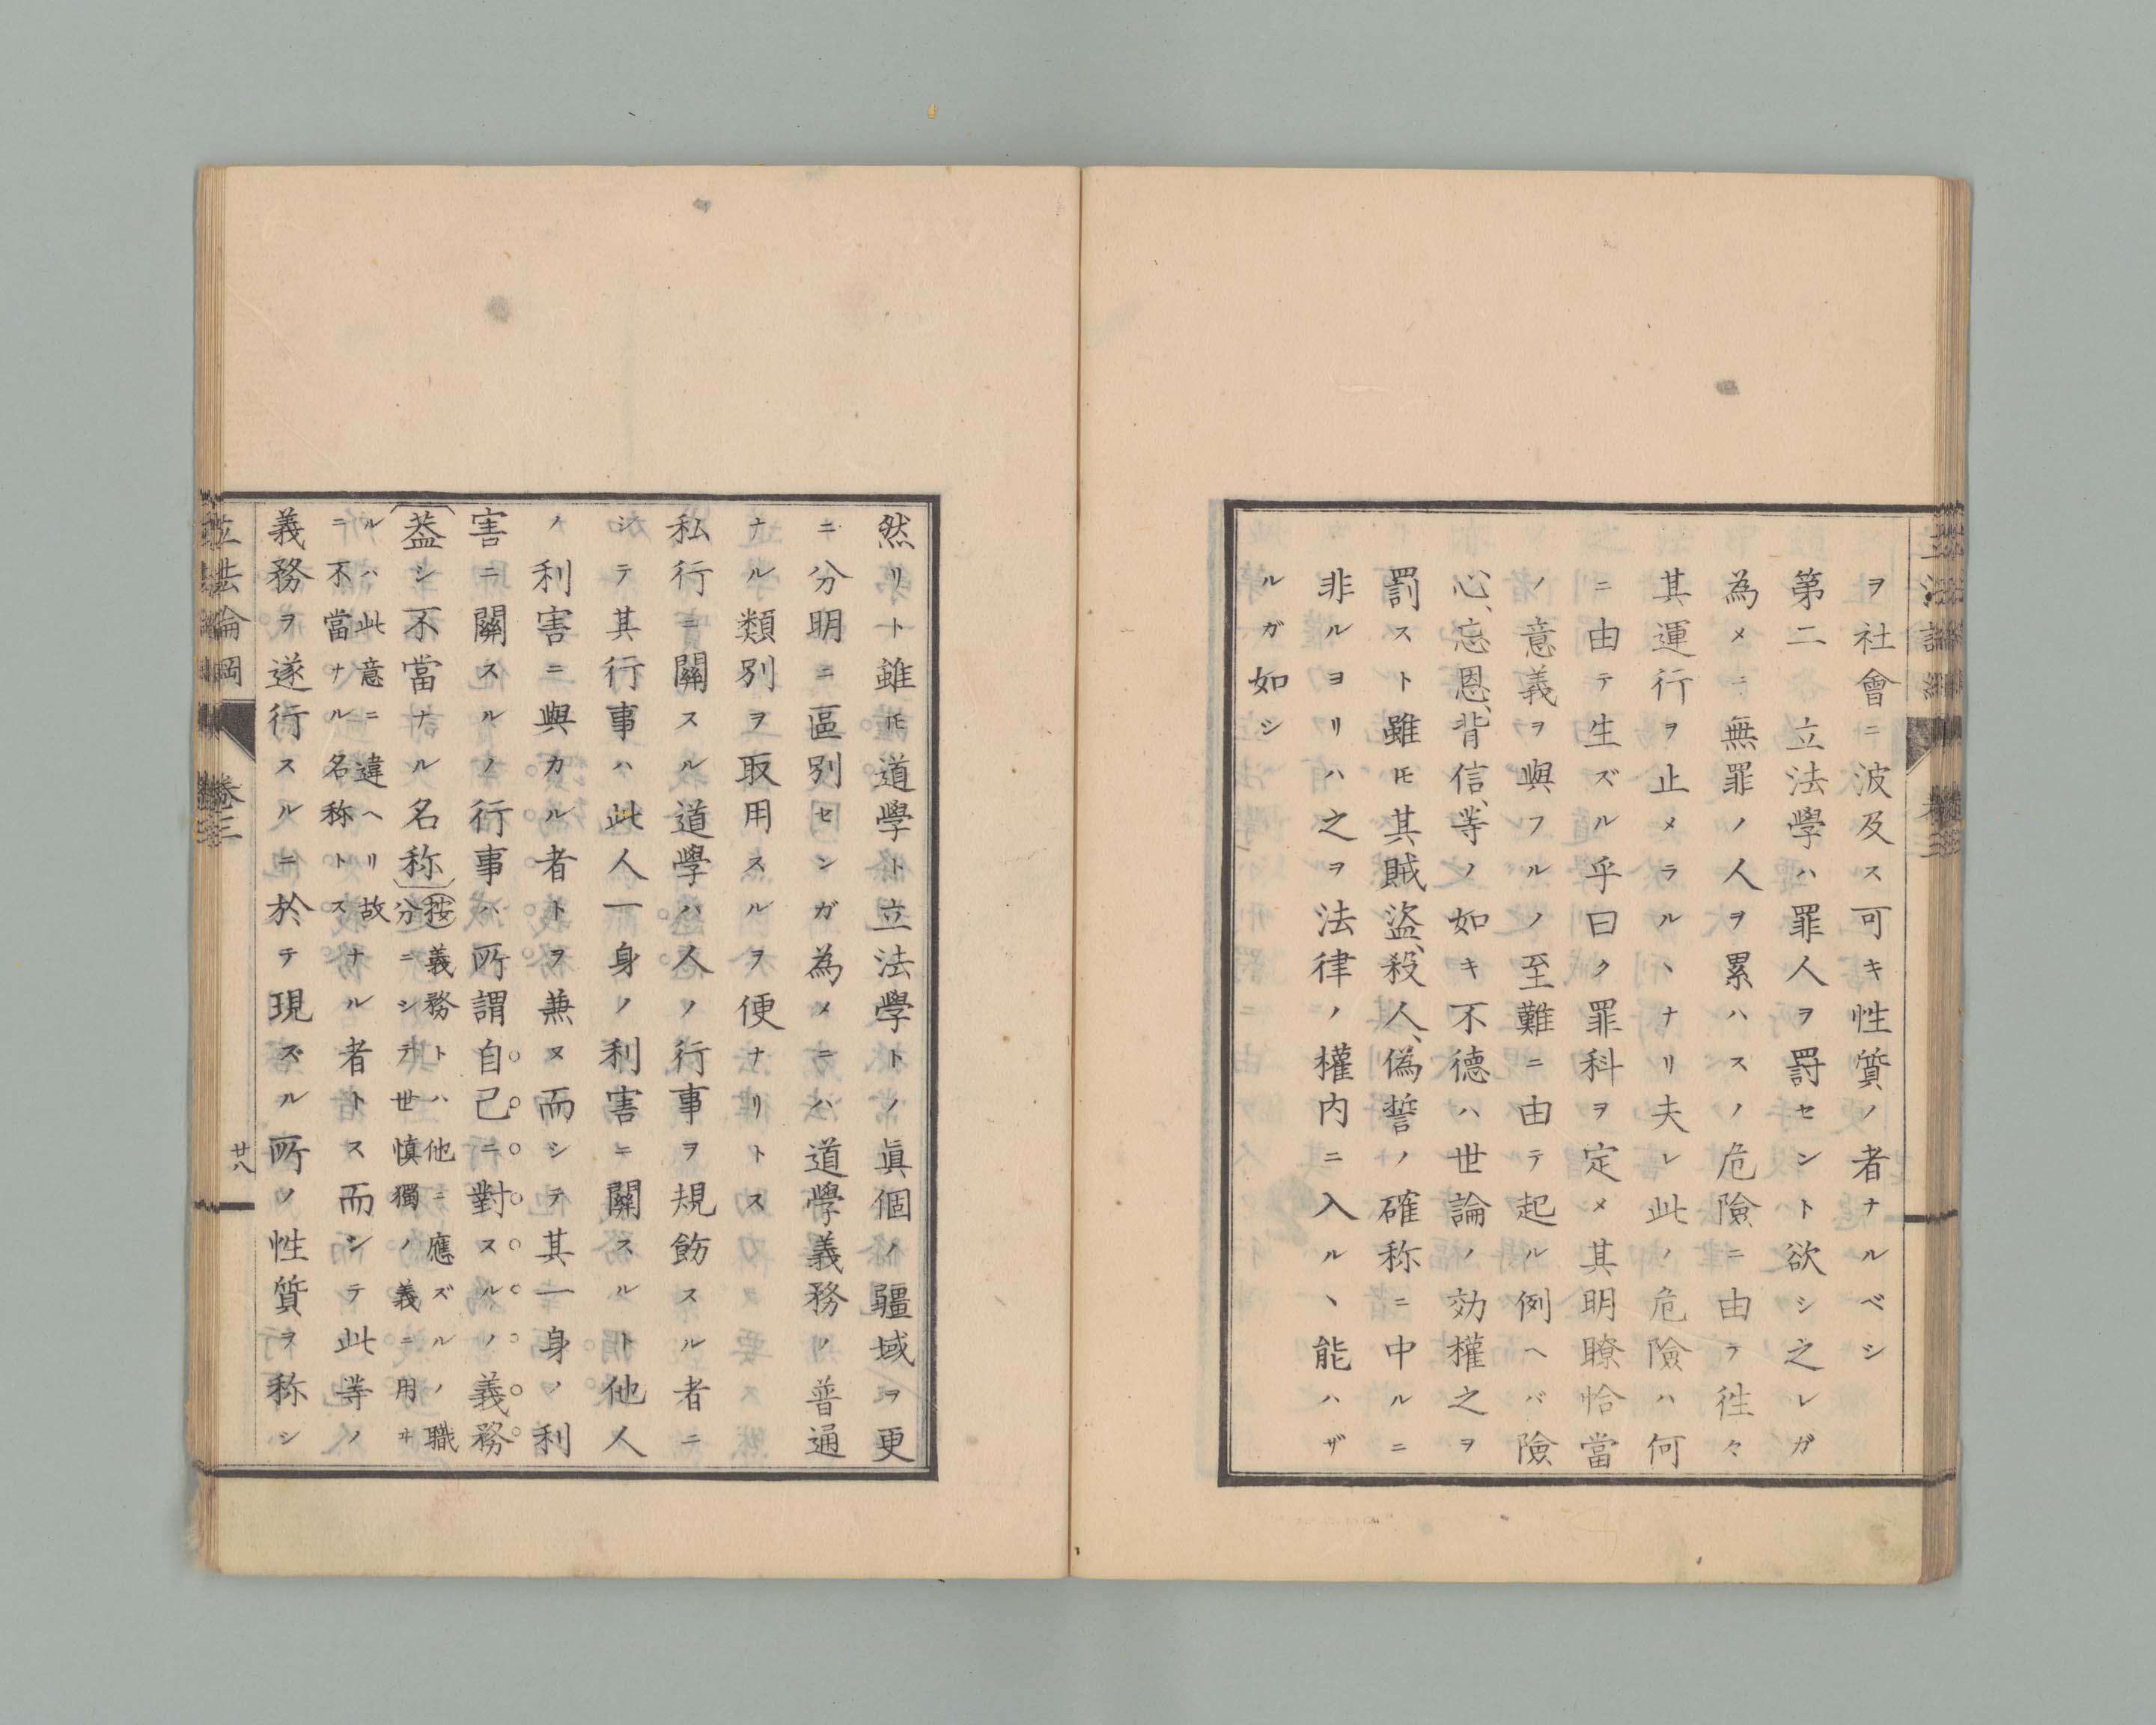 ヲ社會ニ波及ス可キ性質ノ者ナルベシ
第二　立法學ハ罪人ヲ罸セント欲シ之レガ
為メニ無罪ノ人ヲ累ハスノ危險ニ由テ徃々
其運行ヲ止メラルヽナリ夫レ此ノ危險ハ何
ニ由テ生ズル乎曰ク罪科ヲ定メ其明瞭恰當
ノ意義ヲ與フルノ至難ニ由テ起ル例ヘバ險
心、忘恩、背信、等ノ如キ不德ハ世論ノ効權之ヲ
罰スト雖𪜈其賊盜、殺人、偽誓ノ確称ニ中ルニ
非ルヨリハ之ヲ法律ノ權内ニ入ルヽ能ハザ
ルガ如シ
然リト雖𪜈道學ト立法學トノ眞個ノ疆域ヲ更
ニ分明ニ區別センガ為メニハ道學義務ノ普通
ナル類別ヲ取用スルヲ便ナリトス
私行ニ關スル道學ハ人ノ行事ヲ規飭スル者ニ
シテ其行事ハ此人一身ノ利害ニ關スルト他人
ノ利害ニ與カル者トヲ兼ヌ而シテ其一身ノ利
害ニ關スルノ行事ハ所謂自己ニ對スルノ義務
（葢シ不當ナル名称）（按義務トハ他ニ應ズルノ職
分ニシテ世慎獨ノ義ニ用ヰ
ルハ此意ニ違ヘリ故
ニ不當ナル名称トス
ナル者トス而シテ此等ノ
義務ヲ遂行スルニ於テ現ズル所ノ性質ヲ称シ
立法論綱　卷三　廿八